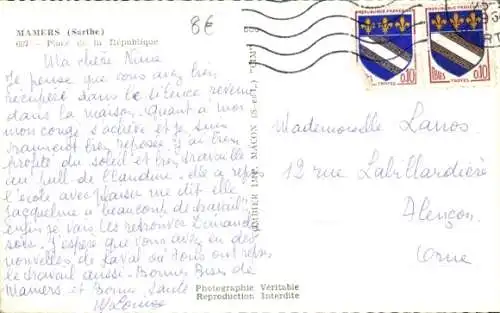 MAMERS (Sarthe)
607 - Place de la République
8€
Ma chère Nina
Je pense que vous avez bien
récupéré dans le silence revenu
dans la maison. Quant à moi
mon congé s'achève et je suis
vraiment bien reposée. J'ai bien
profité du soleil et bien travaillé
au pull de Claudine. elle a repris
l'école avec plaisir me dit elle
Jacqueline a beaucoup de travail
enfin je vais les retrouver Dimanche
soir. J'espère que vous avez eu des
nouvelles de Laval où tous ont repris
le travail aussi. Bonnes Bises de
Mamers et Bonne Santé
COMBIER IMP. MACON
Photographie Véritable
Reproduction Interdite
REPUBLIQUE FRANÇAISE
POSTES
0,10
TROYES
REPUBLIQUE FRANÇAISE
POSTES
0,10
TROYES
Mademoiselle Lanos
12 rue Labillardière
Alençon
Orne